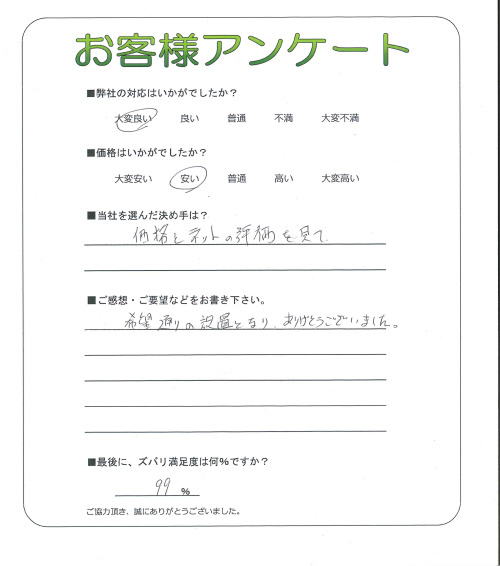 お客様アンケート
■弊社の対応はいかがでしたか？
大変良い 良い 普通 不満 大変不満
■価格はいかがでしたか？
大変安い 安い 普通 高い 大変高い
■当社を選んだ決め手は？
価格とネットの評価を見て
■ご感想・ご要望などをお書き下さい。
希望通りの設置となり、ありがとうございました。
■最後に、ズバリ満足度は何%ですか？
99 %
ご協力頂き、誠にありがとうございました。